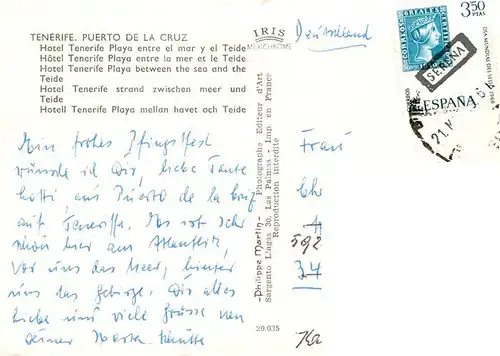 TENERIFE. PUERTO DE LA CRUZ
Hotel Tenerife Playa entre el mar y el Teide
Hôtel Tenerife Playa entre la mer et le Teide
Hotel Tenerife Playa between the sea and the
Teide
Hotel Tenerife strand zwischen meer und
Teide
Hotell Tenerife Playa mellan havet och Teide
Ein frohes Pfingstfest
wünsche ich Dir, liebe Tante
Lotti, aus Puerto de la Cruz
auf Teneriffa. Es ist sehr
schön hier am Atlantik,
vor uns das Meer, hinter
uns das Gebirge. Dir alles
Liebe und viele Grüsse von
Deiner
IRIS
MEXICHROME
-Philippe Martin- Photographe Editeur d'Art
Sargento Llagas 30, Las Palmas - Imp. en France
Reproduction Interdite
20.035
Deutschland
Frau
Chr
4
592
34
CORREOS
REALES
3,50
PTAS
DIA MUNDIAL DEL SELLO
SERENA
ESPAÑA
21